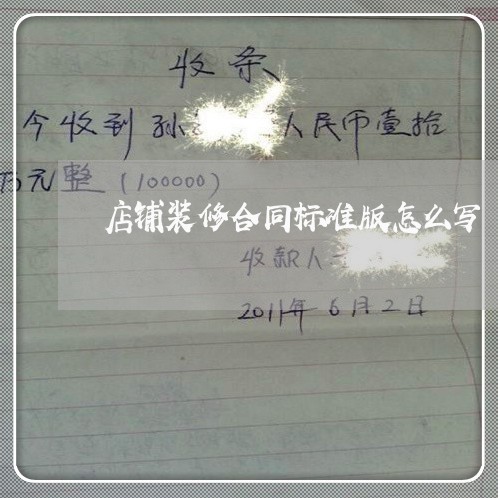 收条
今收到孙 人民币壹拾
万元整(100000)
店铺装修合同标准版怎么写
收款人:
2011年6月2日